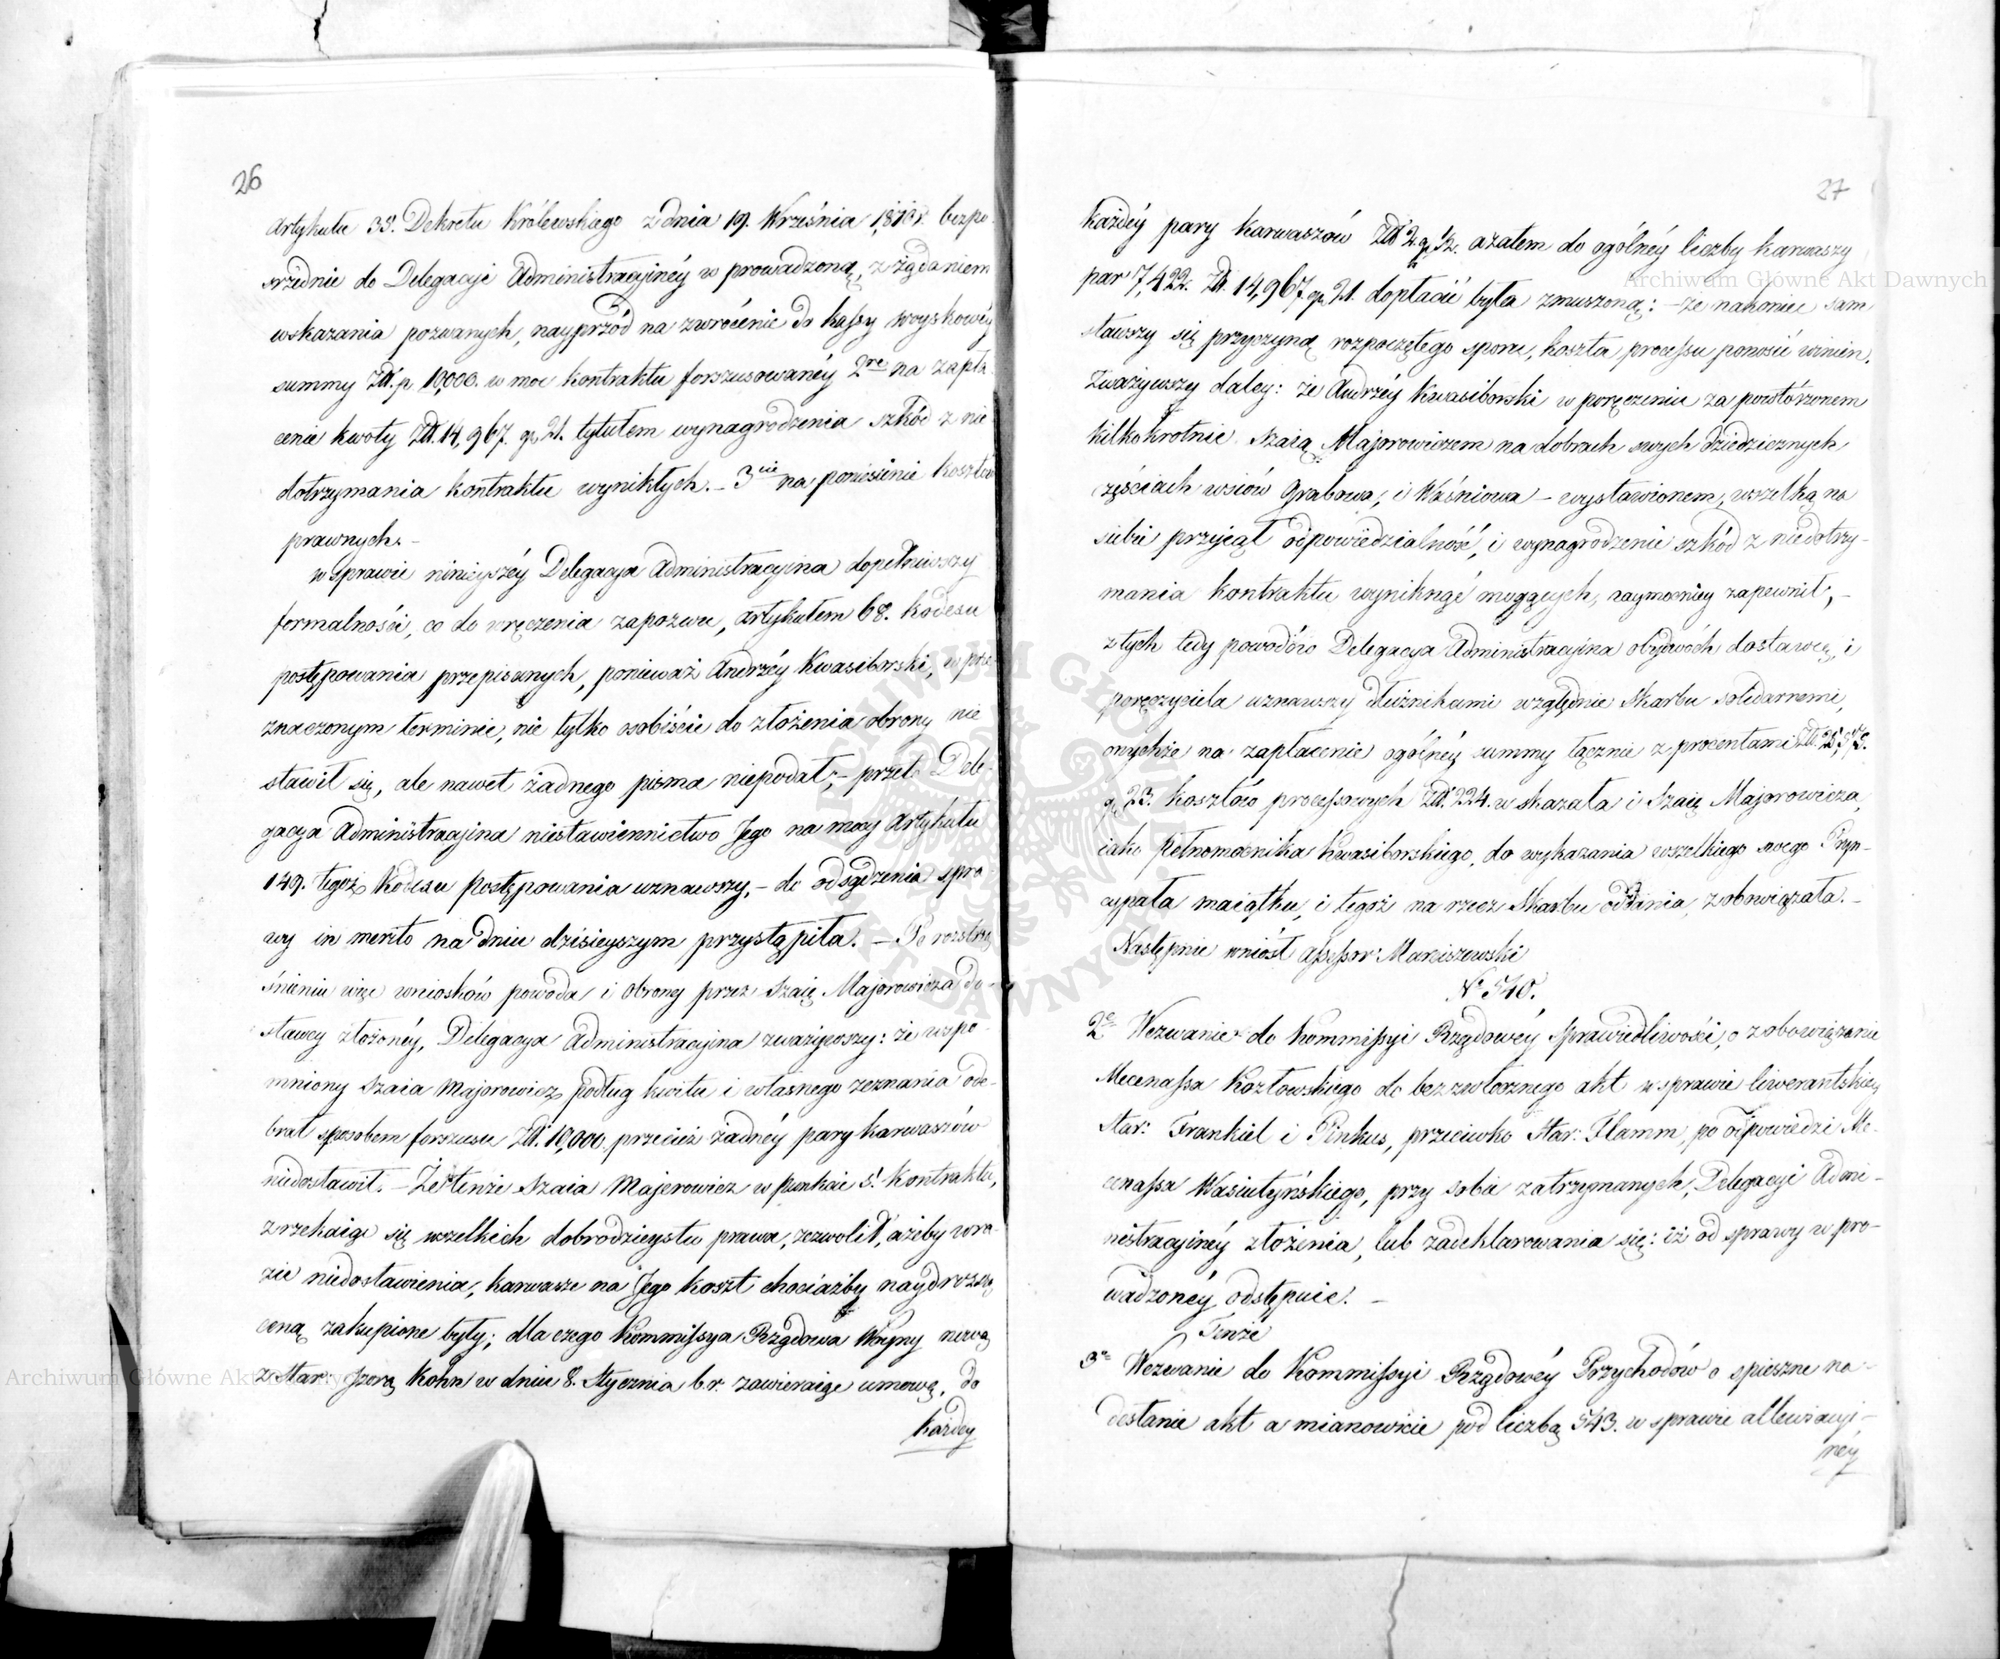 26
Artykułu 35. Dekretu Królewskiego z dnia 19. Września 1810r. bezpo-
srzednie do Delegacyi Administracyinéy w prowadzoną, z żądaniem
wskazania pozwanych, nayprzód na zwrócenie do kassy woyskowéy
summy Złł.p. 10,000. w moc kontraktu forszusowanéy 2re na zapła-
cenie kwoty Złł.14,967. gr. 21. tytułem wynagrodzenia szkód z nie
dotrzymania kontraktu wynikłych. – 3cie na poniesienie kosztów
prawnych. –
w sprawie ninieyszéy Delegacya Administracyina dopełniwszy
formalności, co do wręczenia zapozwu, artykułem 68. kodexu
postępowania przepisanych, ponieważ Andrzéy Kwasiborski, w prze-
znaczonym terminie, nie tylko osobiście do złożenia obrony nie
stawił się, ale nawet żadnego pisma niepodał; – przeto Dele-
gacya Administracyina niestawiennictwo Jego na mocy Artykułu
149. tegoż Kodexu Postępowania uznawszy, – do odsądzenia spra
wy in merito na dniu dzisieyszym przystąpiła. – Po roztrzą
śnieniu więc wniosków powoda i obrony przez Szaię Majorowicza do-
stawcy złożonéy, Delegacya Administracyina zważywszy: że wspo-
mniony Szaia Majorowicz podług kwitu i własnego zeznania ode-
brał sposobem forszusu Złł. 10,000. przecież żadnéy pary karwaszów
niedostawił. – Że tenże Szaia Majerowicz w punkcie 5. kontraktu,
zrzekaiąc się wszelkich dobrodzieystw prawa, zezwolił, ażeby w ra-
zie niedostawienia, karwasze na Jego koszt chociażby naydroższą
ceną zakupione były; dla czego Kommissya Rządowa Woyny nową
z Star: Jzorą Kohn w dniu 8. Stycznia b.r. zawieraiąc umowę, do
każdey
27
każdéy pary karwaszów Złł 2 gr. ½. azatem do ogólnéy liczby karwaszy
par 7,422. Złł. 14,967 gr. 21. dopłacić była zmuszoną: – że nakoniec sam
stawszy się przyczyną rozpoczętego sporu, koszta processu ponosić winien.
Zważywszy daley: że Andrzéy Kwasiborski w poręczeniu za powtórzonem
kilkokrotnie Szaią Majorowiczem na dobrach swych dziedzicznych
częściach wsiów Grabowa, i Waśniowa – wystawionem, wszelką na
siebie przyiął odpowiedzialność, i wynagrodzenie szkód z niedotrzy-
mania kontraktu wyniknąć mogących, naymocniey zapewnił, –
z tych tedy powodów Delegacya Administracyina obydwóch dostawcę, i
poręczyciela uznawszy dłużnikami względnie Skarbu solidarnemi,
onychże na zapłacenie ogólnéy summy łącznie z procentami Złł.
gr. 23. kosztów processowych Złł. 224. wskazała i Szaię Majorowicza,
iako pełnomocnika Kwasiborskiego, do wykazania wszelkiego swego Pryn-
cypała maiątku, i tegoż na rzecz Skarbu oddania, zobowiązała. –
Następnie wniósł Assessor Maniszewski
Nr 540.
2e Wezwanie do Kommissyi Rządowéy Sprawiedliwości, o zobowiązanie
Mecenassa Kozłowskiego do bezzwłocznego akt w sprawie liwerantskiey
Star: Frankiel i Pinkus, przeciwko Star: Flamm, po odpowiedzi Me-
cenassa Wasiutyńskiego, przy sobie zatrzymanych, Delegacyi Admi-
nistracyinéy złożenia, lub zadeklarowania się: iż od sprawy w pro-
wadzonéy odstępuie. –
Tenże
3e Wezwanie do Kommissyi Rządowéy Przychodów o spieszne na-
desłanie akt a mianowicie pod liczbą 543. w sprawie allewiacyi-
néy
Archiwum Główne Akt Dawnych
Archiwum Główne Akt Dawnych
ARCHIWUM GŁÓWNE AKT DAWNYCH